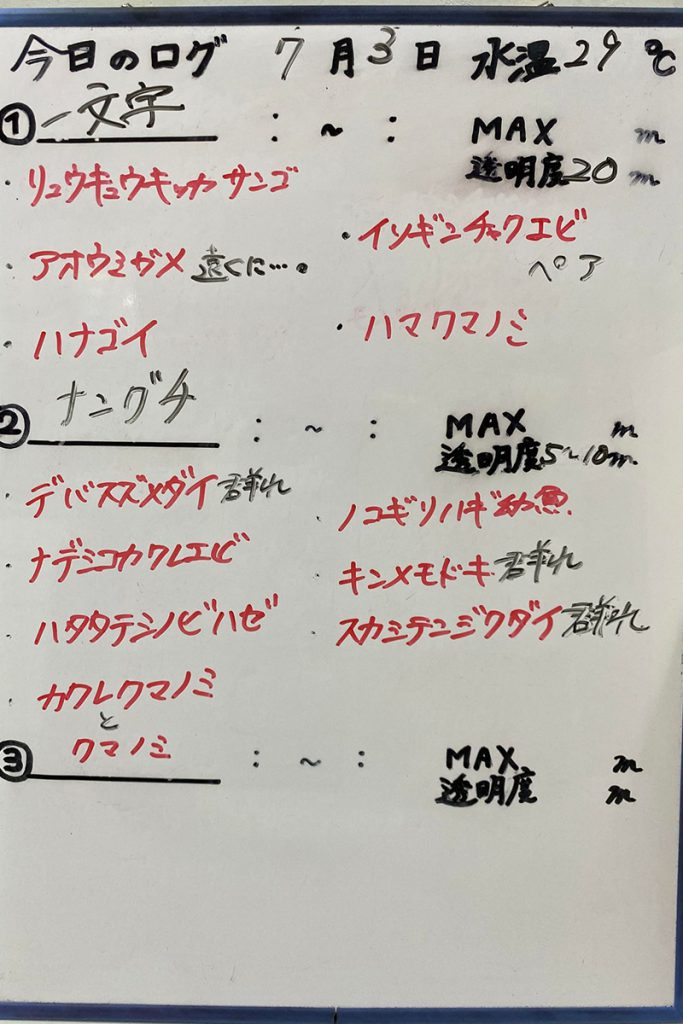 今日のログ 7月3日 水温29℃
① 一文字 : ~ : MAX m
透明度20m
・リュウキュウキッカサンゴ
・イソギンチャクエビ
ペア
・アオウミガメ 遠くに…。
・ハナゴイ
・ハマクマノミ
② ナングチ : ~ : MAX m
透明度5~10m
・デバスズメダイ 群れ
・ノコギリハギ幼魚
・ナデシコカクレエビ
・キンメモドキ 群れ
・ハタタテシノビハゼ
・スカシテンジクダイ 群れ
・カクレクマノミ
と
クマノミ
③ : ~ : MAX m
透明度 m